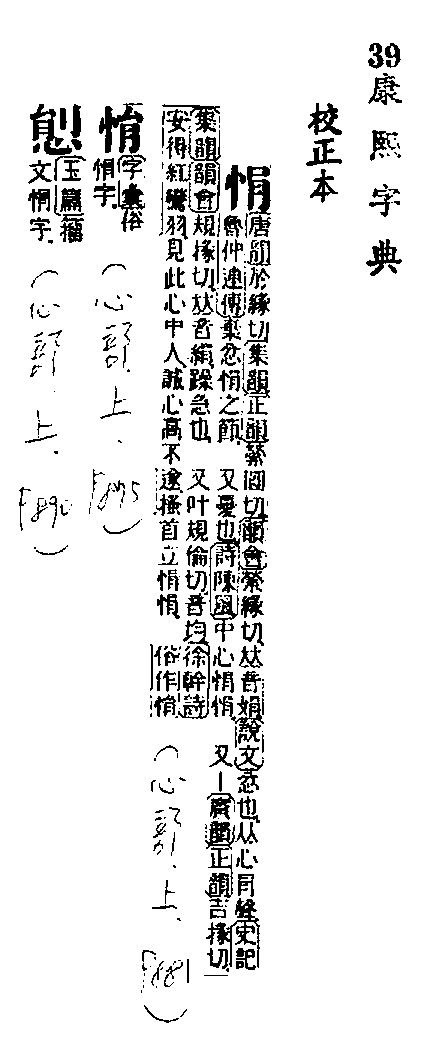 39
康熙字典
校正本
悁
唐韻於緣切集韻正韻縈圓切韻會縈緣切𠀤音娟說文忿也从心肙聲史記
魯仲連傳棄忿悁之節 又憂也詩陳風中心悁悁 又一廣韻正韻吉掾切
集韻韻會規掾切𠀤音絹躁急也 又叶規倫切音均徐幹詩
安得紅鸞羽見此心中人誠心高不遂搔首立悁悁 俗作悄
字彙俗
悁字
玉篇籀
文悁字
(心部.上.P881)
(心部.上.P895)
(心部.上.P890)